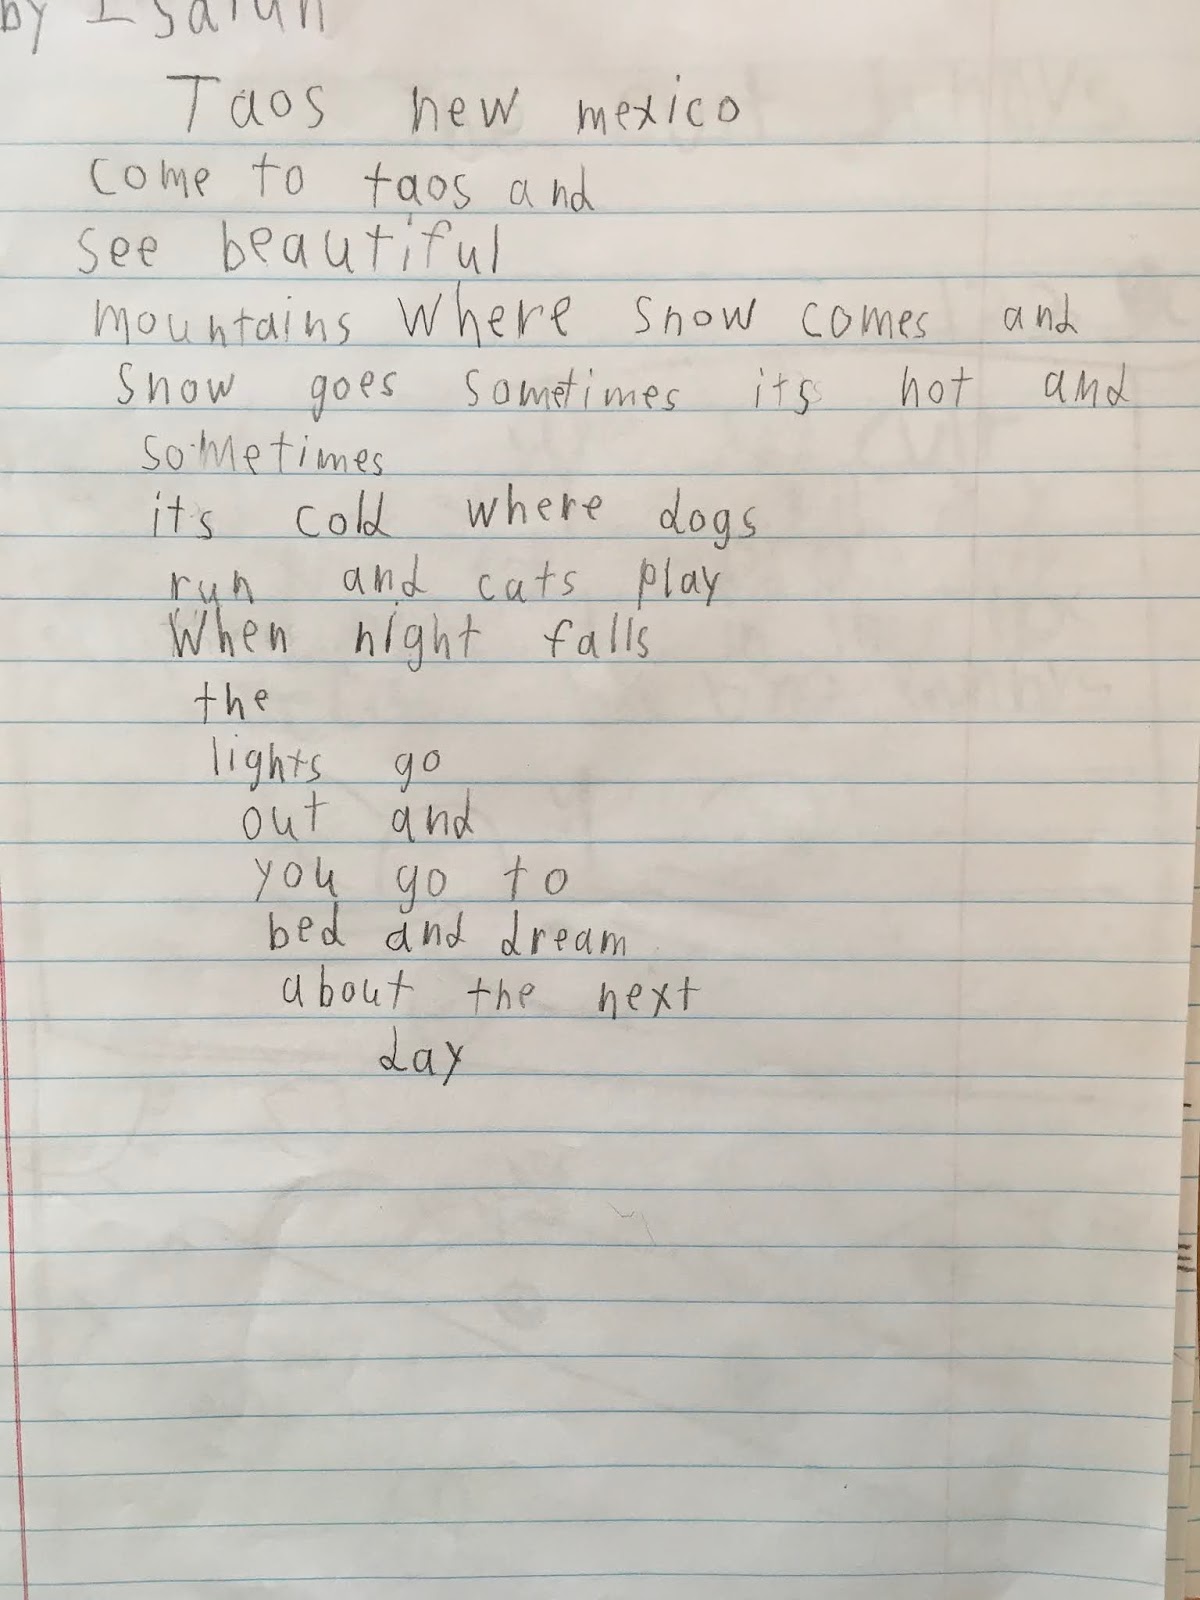 by
Taos new mexico
come to taos and
see beautiful
mountains where snow comes and
snow goes sometimes its hot and
sometimes
its cold where dogs
run and cats play
When night falls
the
lights go
out and
you go to
bed and dream
about the next
day